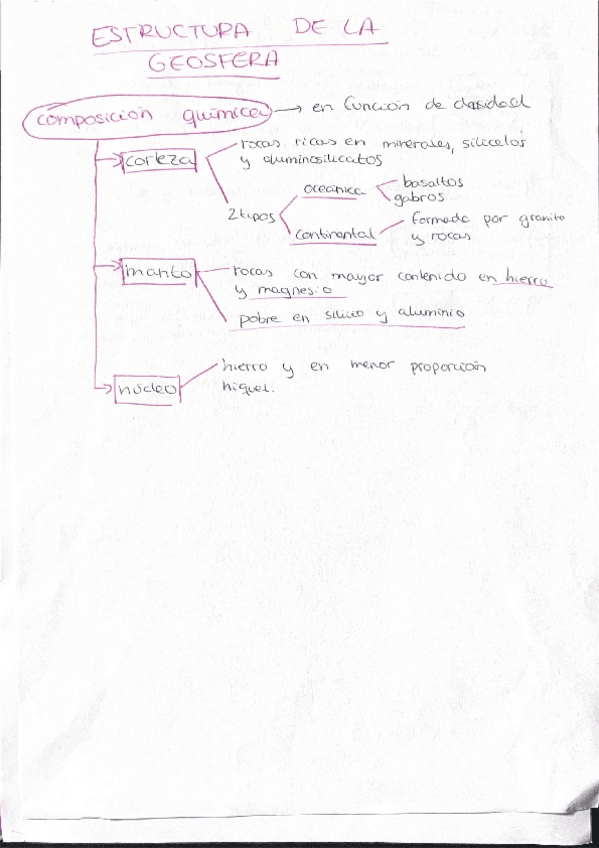 ESTRUCTURA DE LA
GEOSFERA
composición química → en función de densidad
corteza
rocas ricas en minerales, silicatos
y aluminosilicatos
2 tipos
oceánica
basaltos
gabros
continental
formada por granito
y rocas
manto
rocas con mayor contenido en hierro
y magnesio
pobre en silicio y aluminio
núcleo
hierro y en menor proporción
níquel.